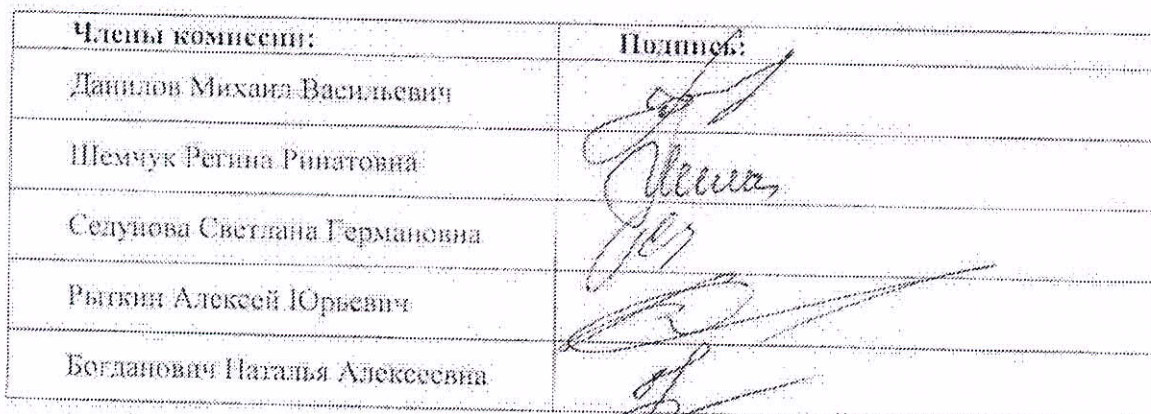 Члены комиссии: Подпись:
Данилов Михаил Васильевич
Шемчук Регина Ринатовна
Седунова Светлана Германовна
Рыткин Алексей Юрьевич
Богданович Наталья Алексеевна